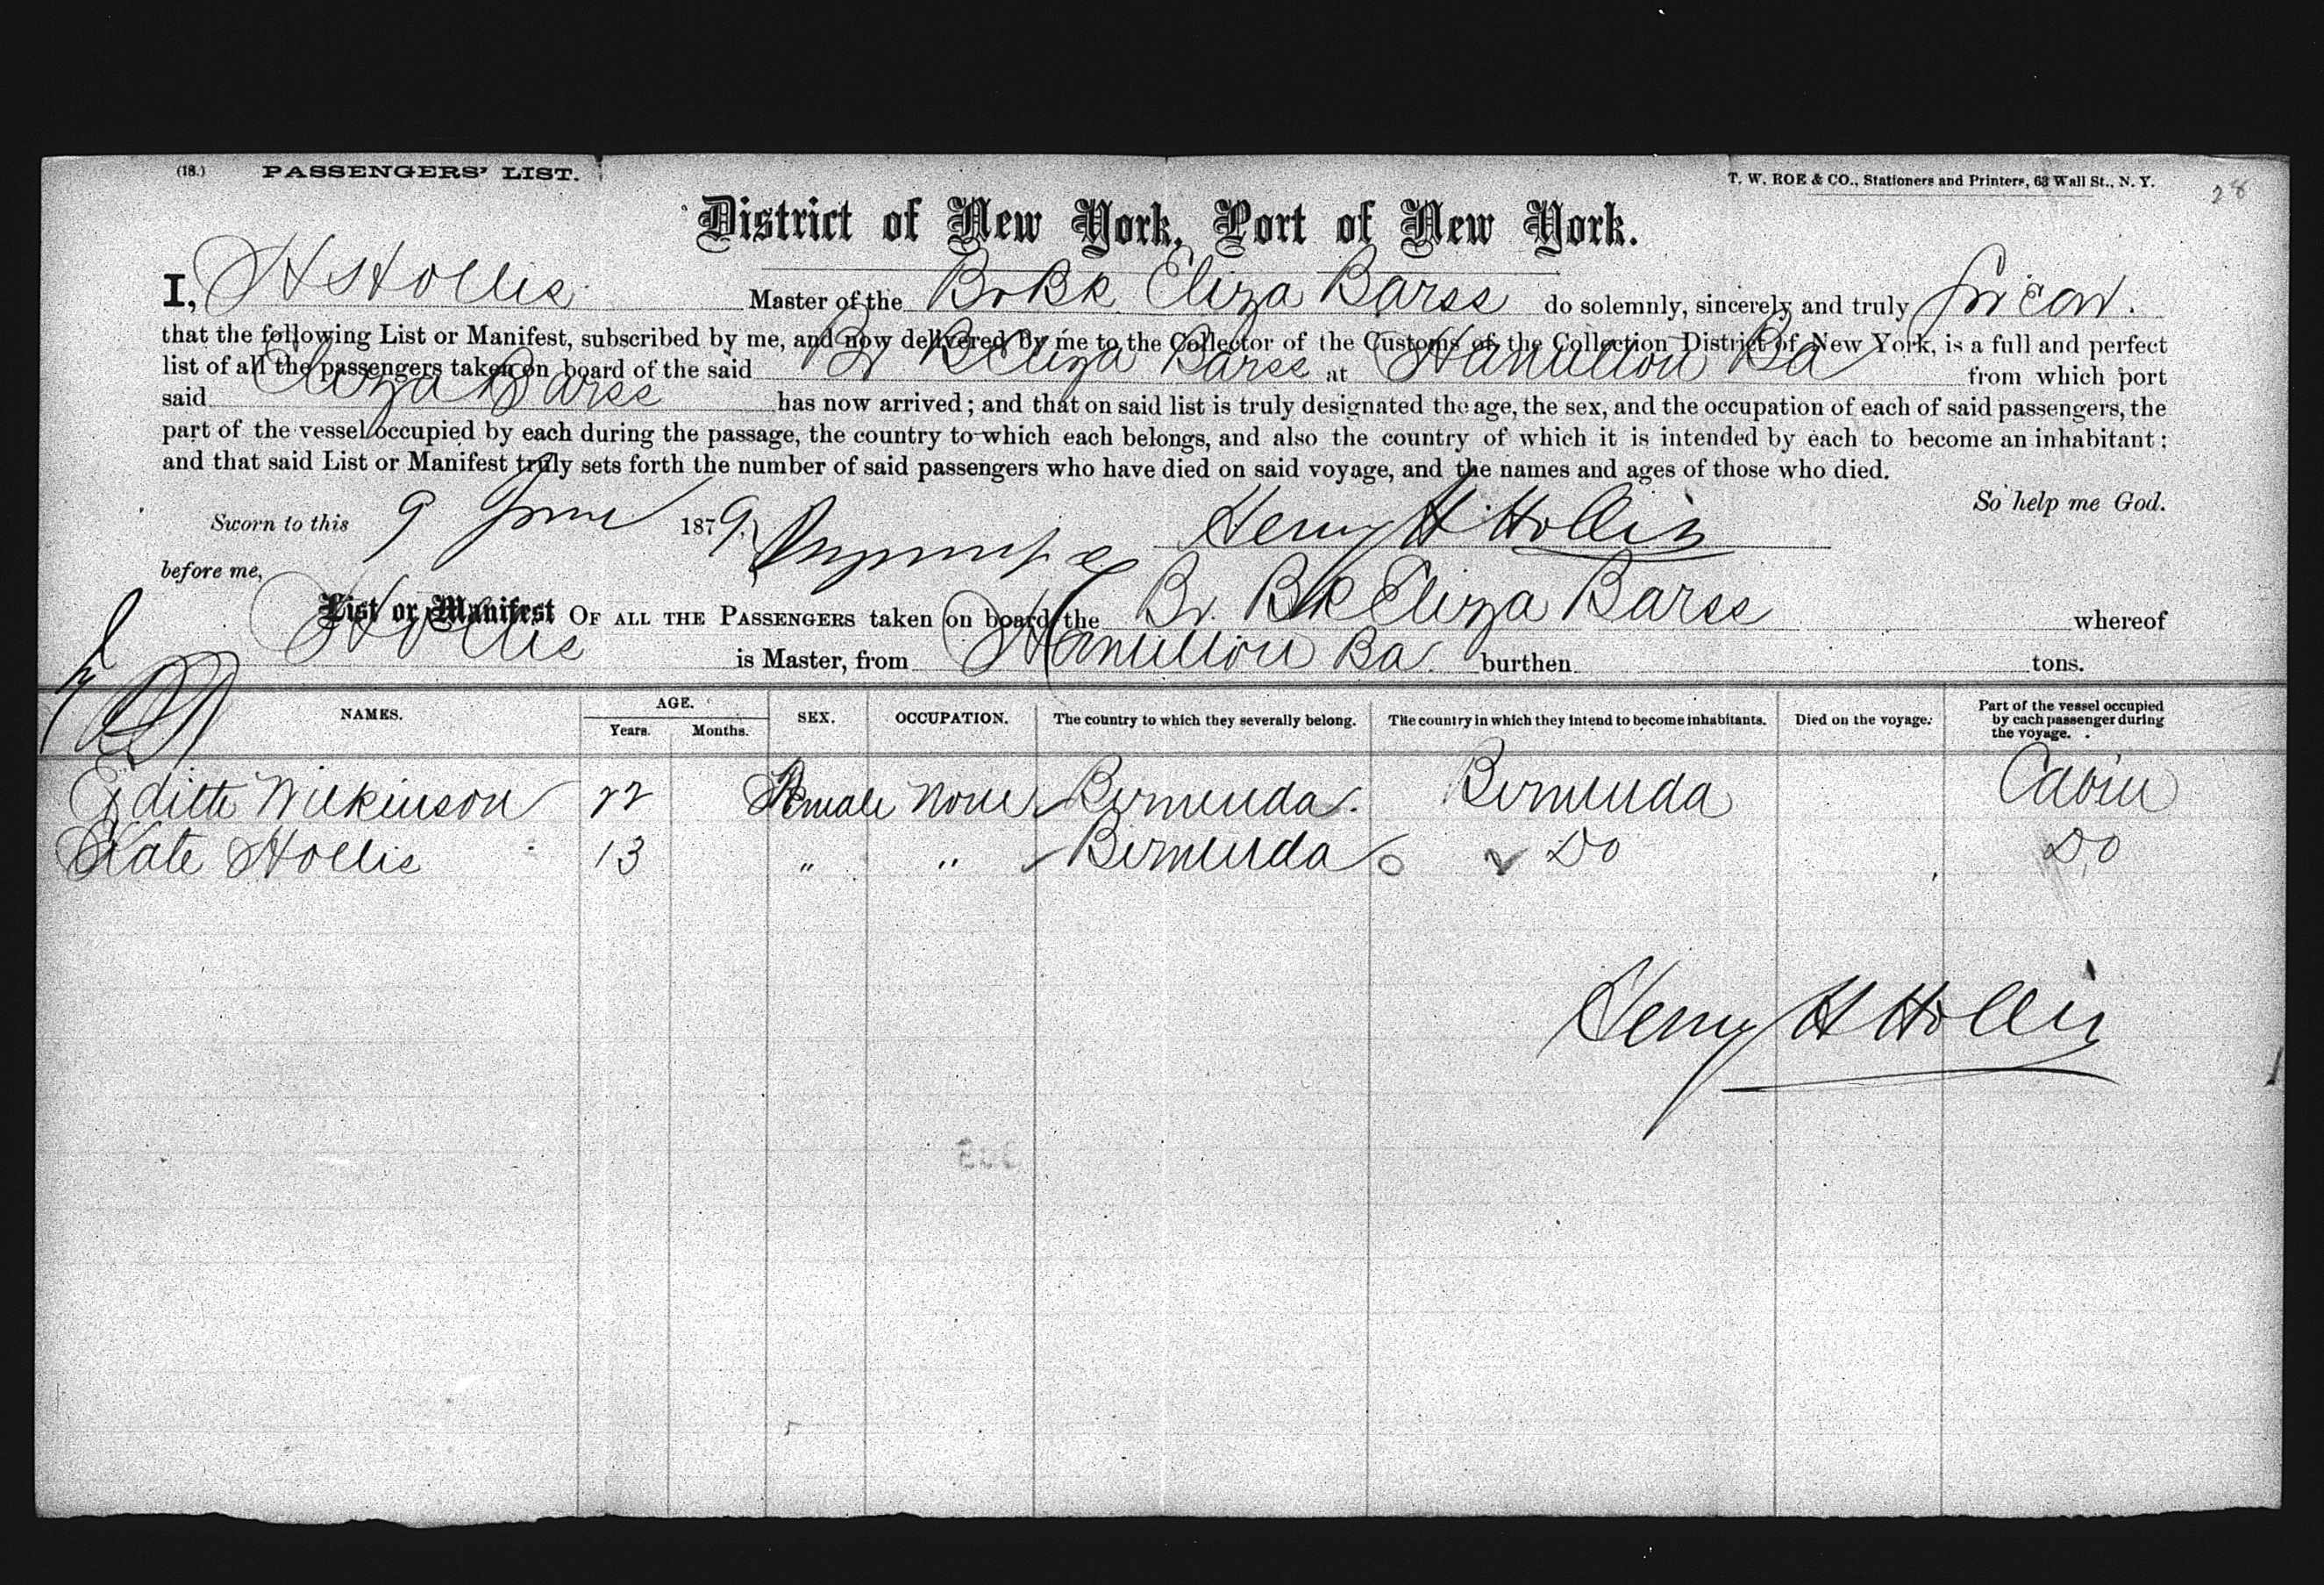 (18.) PASSENGERS' LIST.
T. W. ROE & CO., Stationers and Printers, 63 Wall St., N. Y. 28
District of New York, Port of New York.
I, H Hollis Master of the Br Bk Eliza Barss do solemnly, sincerely and truly swear.
that the following List or Manifest, subscribed by me, and now delivered by me to the Collector of the Customs of the Collection District of New York, is a full and perfect
list of all the passengers taken on board of the said Br Bk Eliza Barss at Hamilton Ba from which port
said Eliza Barss has now arrived; and that on said list is truly designated the age, the sex, and the occupation of each of said passengers, the
part of the vessel occupied by each during the passage, the country to which each belongs, and also the country of which it is intended by each to become an inhabitant;
and that said List or Manifest truly sets forth the number of said passengers who have died on said voyage, and the names and ages of those who died.
So help me God.
Sworn to this 9 June 1879, Henry H Hollis
before me,
List or Manifest OF ALL THE PASSENGERS taken on board the Br. Bk Eliza Barss whereof
Hollis is Master, from Hamilton Ba burthen tons.
NAMES. AGE. Years. Months. SEX. OCCUPATION. The country to which they severally belong. The country in which they intend to become inhabitants. Died on the voyage. Part of the vessel occupied by each passenger during the voyage.
Edith Wilkinson 22 Female None Bermuda. Bermuda Cabin
Kate Hollis 13 " " Bermuda Do Do
Henry H Hollis